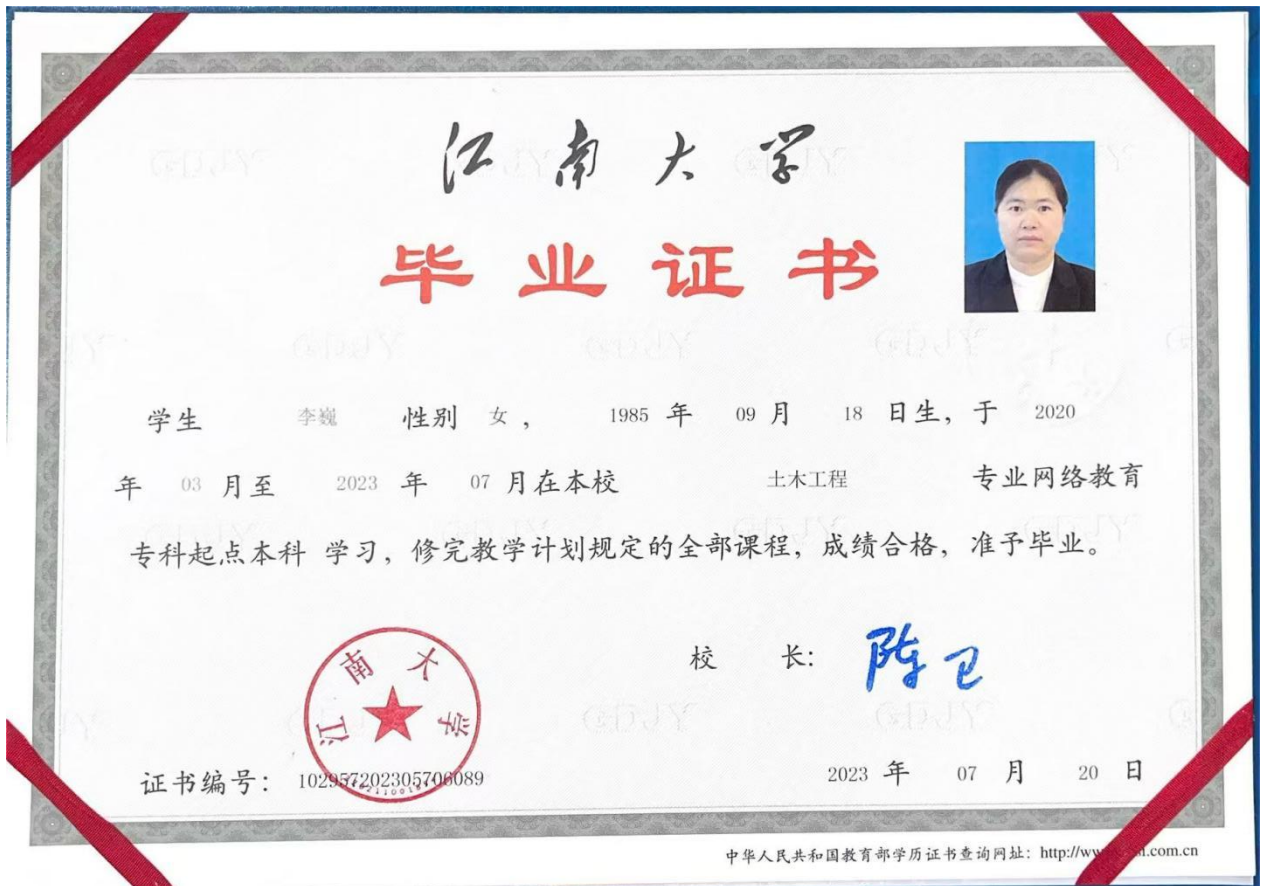 江南大学
毕业证书
学生 李巍 性别 女 ， 1985 年 09 月 18 日生，于 2020
年 03 月至 2023 年 07 月在本校 土木工程 专业网络教育
专科起点本科 学习，修完教学计划规定的全部课程，成绩合格，准予毕业。
江南大学
校 长： 陈卫
证书编号： 102957202305706089
2023 年 07 月 20 日
中华人民共和国教育部学历证书查询网址：http://ww .com.cn